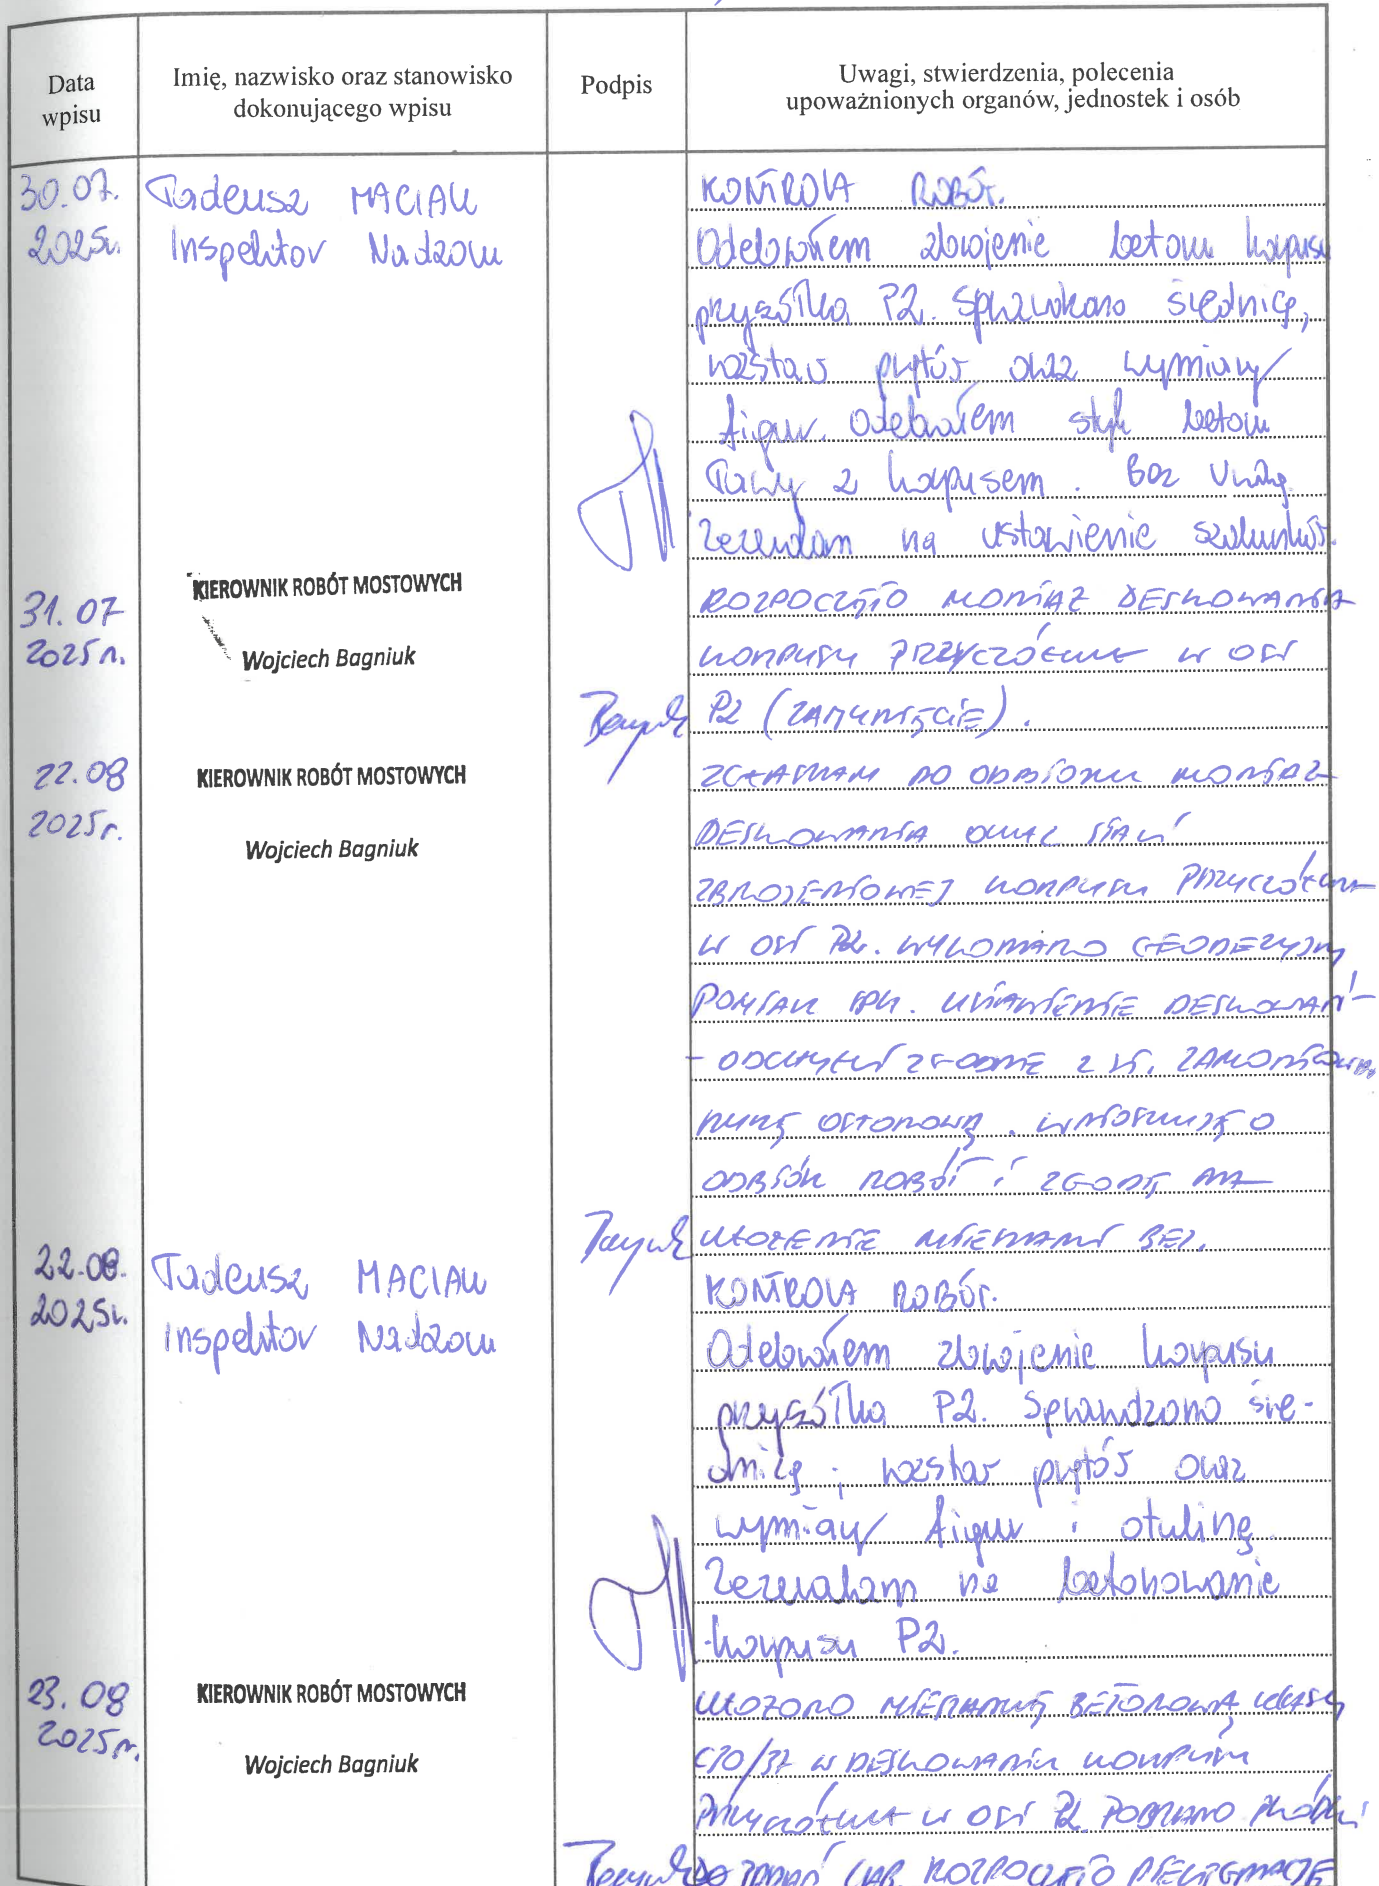 Data wpisu
Imię, nazwisko oraz stanowisko dokonującego wpisu
Podpis
Uwagi, stwierdzenia, polecenia upoważnionych organów, jednostek i osób
30.07. 2025r.
Tadeusz MACIAK
Inspektor Nadzoru
KONTROLA ROBÓT.
Odebrałem zbrojenie betonu korpusu
przyczółka P2. Sprawdzono średnicę,
rozstaw prętów oraz wymiary
figur. Odebrałem styk betonu
ławy z korpusem. Bez uwag.
Zezwalam na ustawienie szalunków.
31.07 2025r.
KIEROWNIK ROBÓT MOSTOWYCH
Wojciech Bagniuk
ROZPOCZĘTO MONTAŻ DESKOWANIA
KORPUSU PRZYCZÓŁKA W OSI
P2 (ZAMKNIĘCIE).
22.08 2025r.
KIEROWNIK ROBÓT MOSTOWYCH
Wojciech Bagniuk
ZGŁASZAM DO ODBIORU MONTAŻ
DESKOWANIA ORAZ STALI
ZBROJENIOWEJ KORPUSU PRZYCZÓŁKA
W OSI P2. WYKONANO GEODEZYJNY
POMIAR SPR. USTAWIENIE DESKOWAŃ -
- ODCHYŁKI ZGODNE Z ST. ZAMONTOWANO
RURĘ OSŁONOWĄ. WNIOSKUJĘ O
ODBIÓR ROBÓT I ZGODĘ NA
UŁOŻENIE MIESZANKI BET.
22.08. 2025r.
Tadeusz MACIAK
Inspektor Nadzoru
KONTROLA ROBÓT.
Odebrałem zbrojenie korpusu
przyczółka P2. Sprawdzono śre-
dnicę, rozstaw prętów oraz
wymiary figur i otulinę.
Zezwalam na betonowanie
korpusu P2.
23.08 2025r.
KIEROWNIK ROBÓT MOSTOWYCH
Wojciech Bagniuk
UŁOŻONO MIESZANKĘ BETONOWĄ KLASY
C30/37 W DESKOWANIU KORPUSU
PRZYCZÓŁKA W OSI P2. POBRANO PRÓBKI
DO BADAŃ LAB. ROZPOCZĘTO PIELĘGNACJĘ